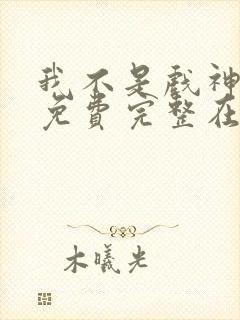 我不是戏神
免费完整在
木曦光